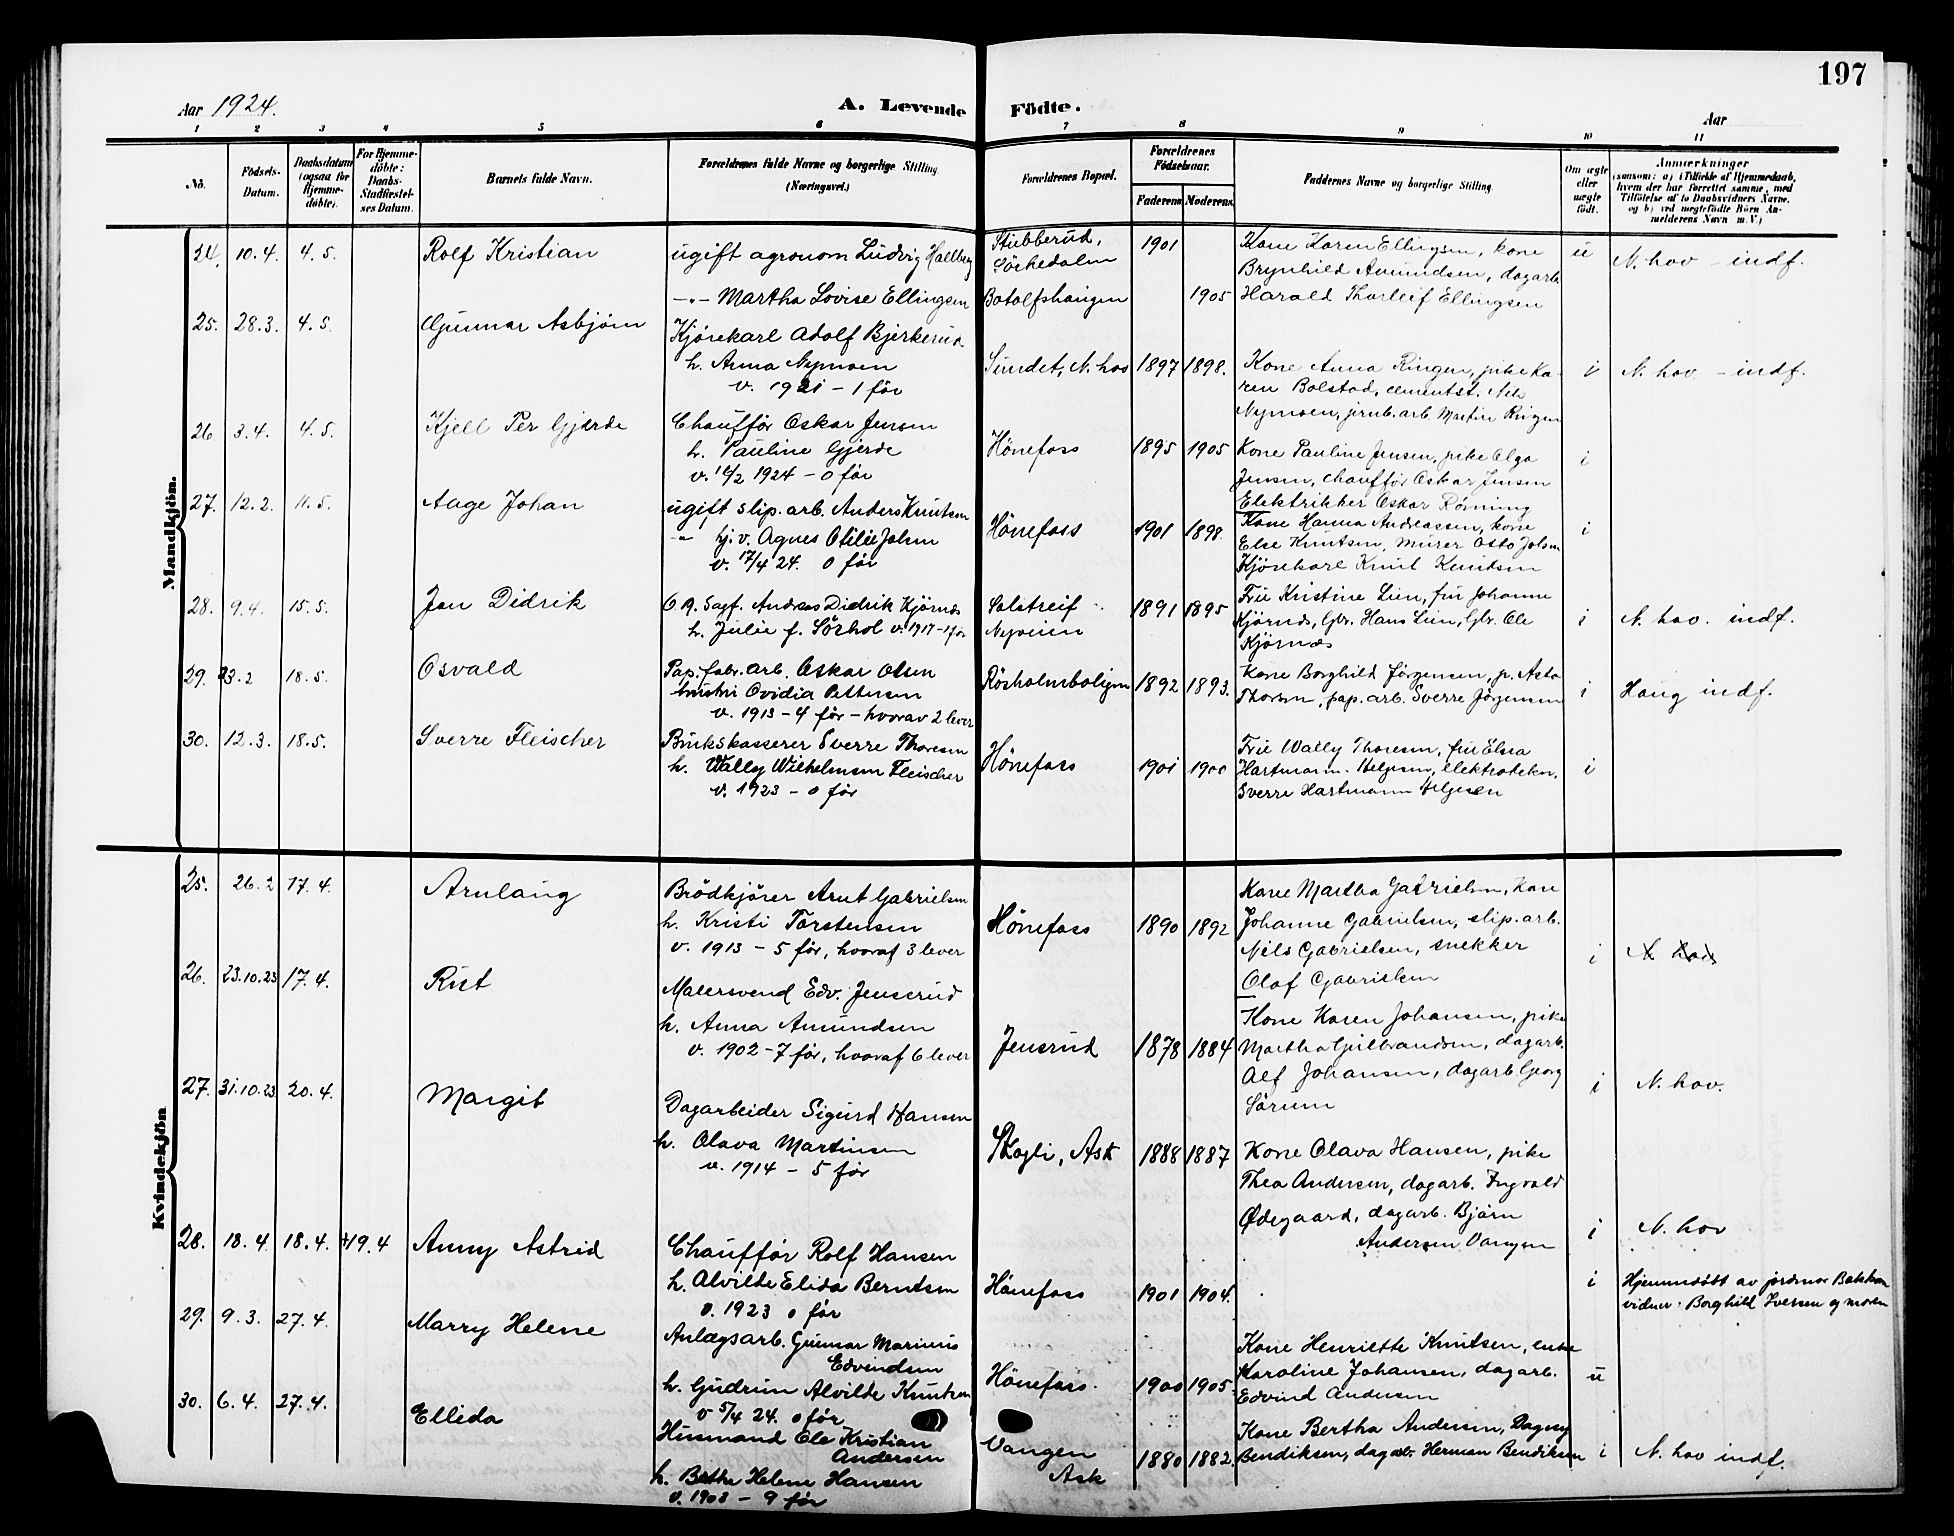 197
Aar 1924.
A. Levende Födte.
Aar
1 2 3 4 5 6 7 8 9 10 11
No. Födsels-Datum. Daabsdatum (ogsaa for Hjemmedöbte). For Hjemmedöbte: Daabs-Stadfæstelses Datum. Barnets fulde Navn. Forældrenes fulde Navne og borgerlige Stilling (Næringsvei.) Forældrenes Bopæl. Forældrenes Födselsaar. Faderens Moderens. Faddernes Navne og borgerlige Stilling. Om ægte eller uægte födt. Anmærkninger
(saasom: a) i Tilfælde af Hjemmedaab, hvem der har forrettet samme, med Tilföielse af to Daabsvidners Navne, og b) ved uægtefödte Börn Anmelderens Navn m. V.)
Mandkjön.
24. 10.4. 4.5. Rolf Kristian ugift agronom Ludvig Hallberg Stubberud, Sörkedalen 1901 Kone Karen Ellingsen, kone u N. hov - indf.
Brynhild Amundsen, dagarb.
-"- Martha Lovise Ellingsen Botolfshaugen 1905 Harald Thorleif Ellingsen
25. 28.3. 4.5. Gunnar Asbjörn Kjörekarl Adolf Bjerkerud
h. Anna Nymoen Sundet, N. hov 1897 1898. Kone Anna Ringen, pike Ka- i N. hov - indf.
v. 1921 - 1 før ren Bolstad, cementst. Nils
Nymoen, jernb. arb Martin Ringen
26. 3.4. 4.5. Kjell Per Gjerde Chauffør Oskar Jensen
h. Pauline Gjerde Hønefoss 1895 1905 Kone Pauline Jensen, pike Olga i
v. 16/2 1924 - 0 før Jensen, chauffør Oskar Jensen
Elektrikker Oskar Rönning
27. 12.2. 11.5. Aage Johan ugift slip. arb. Anders Knutsen Hønefoss 1901 1898. Kone Hanna Andreassen, kone i
-"- hj. v. Agnes Otilie Jolsen Else Knutsen, murer Otto Jolsen
v. 17/4 24. 0 før Kjörekarl Knut Knutsen
28. 9.4. 15.5. Jan Didrik Andreas Didrik Kjörnæs Solstreif 1891 1895 Fru Kristine Lien, fru Johanne i N. hov. indf.
h. Julie f. Sörhol v. 1917 - 1 før Nyveien Kjörnæs, gbr. Hans Lien, gbr. Ole
Kjörnæs
29. 23.2 18.5. Osvald Pap. fabr. arb. Oskar Olsen Rösholmboligen 1892 1893. Kone Borghild Jörgensen, p. Asta i Haug indf.
hustru Ovidia Pettersen Thorsen, pap. arb. Sverre Jörgensen
v. 1913 - 4 før - hvorav 2 lever
30. 12.3. 18.5. Sverre Fleischer Brukskasserer Sverre Thoresen Hønefoss 1901 1900 Fru Wally Thoresen, fru Elna i
h. Wally Wilhelmsen Fleischer Hartmann-Helgesen, elektrotekn.
v. 1923 - 0 før Sverre Hartmann Helgesen
Kvindekjön
25. 26.2 17.4. Arnlaug Brödkjörer Arnt Gabrielsen Hønefoss 1890 1892 Kone Martha Gabrielsen, Kone
h. Kristi Torstensen Johanne Gabrielsen, slip. arb.
v. 1913 - 5 før, hvoraf 3 lever Nils Gabrielsen, snekker i N hov
Olaf Gabrielsen
26. 23.10.23 17.4. Rut Malersvend Edv. Jenserud
h. Anna Amundsen Jenserud 1878 1884 Kone Karen Johansen, pike
v. 1902 - 7 før, hvoraf 6 lever Martha Gulbrandsen, dagarb.
Alf Johansen, dagarb Georg i N. hov.
Sörum
27. 31.10.23 20.4. Margit Dagarbeider Sigurd Hansen
h. Olava Martinsen Skogli, Ask 1888 1887 Kone Olava Hansen, pike
v. 1914 - 5 før Thea Andersen, dagarb. Ingvald
Ødegaard, dagarb. Bjarn i N. hov
Andersen Vangen
28. 18.4. 18.4. +19.4 Anny Astrid Chauffør Rolf Hansen
h. Alvilde Elida Berntsen Hønefoss 1901 1904. i Hjemmedöbt av jordmor Bakken
v. 1923 0 før vidner: Borghild Iversen og moren
29. 9.3. 27.4. Marry Helene Anlægsarb. Gunnar Marinius
Edvindsen Kone Henriette Knutsen, enke
h. Gudrun Alvilde Knutsen Hønefoss. 1900 1905. Karoline Johansen, dagarb. u
v 5/4 24. 0 før Edvind Andersen
30. 6.4. 27.4. Ellida Husmand Ole Kristian Vangen Kone Bertha Andersen, Dagny
Andersen Ask 1880 1882. Bendiksen, dagarb. Herman Bendiksen i N. hov indf.
h. Bertha Helene Hansen
v. 1903 - 9 før